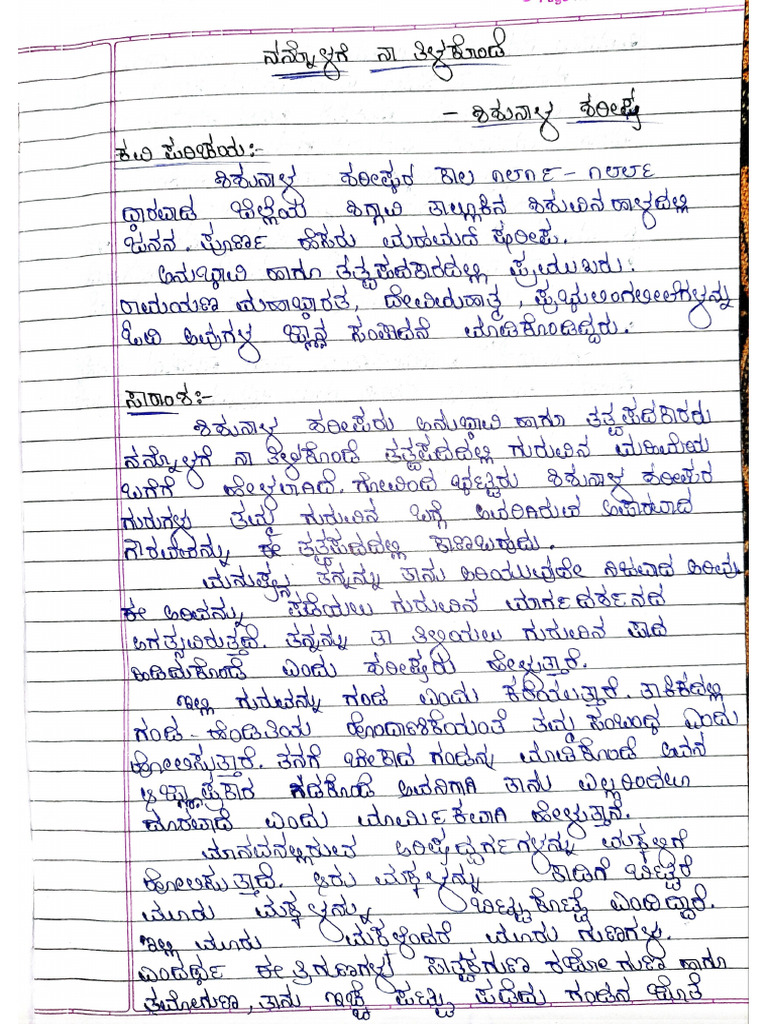 ನನ್ನೊಳಗೆ ನಾ ತಿಳಕೊಂಡೆ
- ಶಿಶುನಾಳ ಶರೀಫ
ಕವಿ ಪರಿಚಯ:-
ಶಿಶುನಾಳ ಶರೀಫರ ಕಾಲ ೧೮೧೯ - ೧೮೮೯
ಧಾರವಾಡ ಜಿಲ್ಲೆಯ ಶಿಗ್ಗಾವಿ ತಾಲ್ಲೂಕಿನ ಶಿಶುವಿನಹಾಳದಲ್ಲಿ
ಜನನ. ಪೂರ್ಣ ಹೆಸರು ಮಹಮದ್ ಷರೀಫ.
ಅನುಭಾವಿ ಹಾಗೂ ತತ್ವಪದಕಾರದಲ್ಲಿ ಪ್ರಮುಖರು.
ರಾಮಯಣ ಮಹಾಭಾರತ, ದೇವಿಮಹಾತ್ಮ, ಪ್ರಭುಲಿಂಗಲೀಲೆಗಳನ್ನು
ಓದಿ ಅವುಗಳ ಜ್ಞಾನ ಸಂಪಾದನೆ ಮಾಡಿಕೊಂಡಿದ್ದರು.
ಸಾರಾಂಶ:-
ಶಿಶುನಾಳ ಶರೀಫರು ಅನುಭಾವಿ ಹಾಗೂ ತತ್ವಪದಕಾರರು
ನನ್ನೊಳಗೆ ನಾ ತಿಳಕೊಂಡೆ ತತ್ವಪದದಲ್ಲಿ ಗುರುವಿನ ಮಹಿಮೆಯ
ಬಗೆಗೆ ಹೇಳಲಾಗಿದೆ. ಗೋವಿಂದ ಭಟ್ಟರು ಶಿಶುನಾಳ ಶರೀಫರ
ಗುರುಗಳು ತಮ್ಮ ಗುರುವಿನ ಬಗ್ಗೆ ಅವರಿಗಿರುವ ಅಪಾರವಾದ
ಗೌರವವನ್ನು ಈ ತತ್ವಪದದಲ್ಲಿ ಕಾಣಬಹುದು.
ಮನುಷ್ಯ ತನ್ನನ್ನು ತಾನು ಅರಿಯುವುದೇ ನಿಜವಾದ ಅರಿವು.
ಈ ಅರಿವನ್ನು ಪಡೆಯಲು ಗುರುವಿನ ಮಾರ್ಗದರ್ಶನದ
ಅಗತ್ಯವಿರುತ್ತದೆ. ತನ್ನನ್ನು ತಾ ತಿಳಿಯಲು ಗುರುವಿನ ಪಾದ
ಹಿಡಿದುಕೊಂಡೆ ಎಂದು ಶರೀಫರು ಹೇಳುತ್ತಾರೆ.
ಇಲ್ಲಿ ಗುರುವನ್ನು ಗಂಡ ಎಂದು ಕರೆಯುತ್ತಾರೆ. ತಾಕಿಕದಲ್ಲಿ
ಗಂಡ - ಹೆಂಡತಿಯ ಹೊಂದಾಣಿಕೆಯಂತೆ ತಮ್ಮ ಸಂಬಂಧ ಎಂದು
ಹೋಲಿಸುತ್ತಾರೆ. ತನಗೆ ಬೇಕಾದ ಗಂಡನ್ನ ಮಾಡಿಕೊಂಡೆ ಅವನ
ಆಜ್ಞಾಪ್ರಕಾರ ನಡಕೊಂಡೆ ಅವನಿಗಾಗಿ ತಾನು ಎಲ್ಲರಿಂದಲೂ
ದೂರವಾದೆ ಎಂದು ಮಾರ್ಮಿಕವಾಗಿ ಹೇಳುತ್ತಾರೆ.
ಮಾನವನಲ್ಲಿರುವ ಅರಿಷಡ್ವರ್ಗಗಳನ್ನು ಮಕ್ಕಳಿಗೆ
ಹೋಲಿಸುತ್ತಾರೆ. ಆರು ಮಕ್ಕಳನ್ನು ಕಾಡಿಗೆ ಬಿಟ್ಟರೆ
ಮೂರು ಮಕ್ಕಳನ್ನು ಬಿಟ್ಟುಕೊಟ್ಟೆ ಎಂದಿದ್ದಾರೆ.
ಇಲ್ಲಿ ಮೂರು ಮಕ್ಕಳೆಂದರೆ ಮೂರು ಗುಣಗಳು.
ಎಂದರ್ಥ ಈ ತ್ರಿಗುಣಗಳು ಸಾತ್ವಕಗುಣ ರಜೋಗುಣ ಹಾಗೂ
ತಮೋಗುಣ, ತಾನು ಇಚ್ಛೆ ಪಟ್ಟು ಪಡೆದು ಗಂಡನ ಜೊತೆ